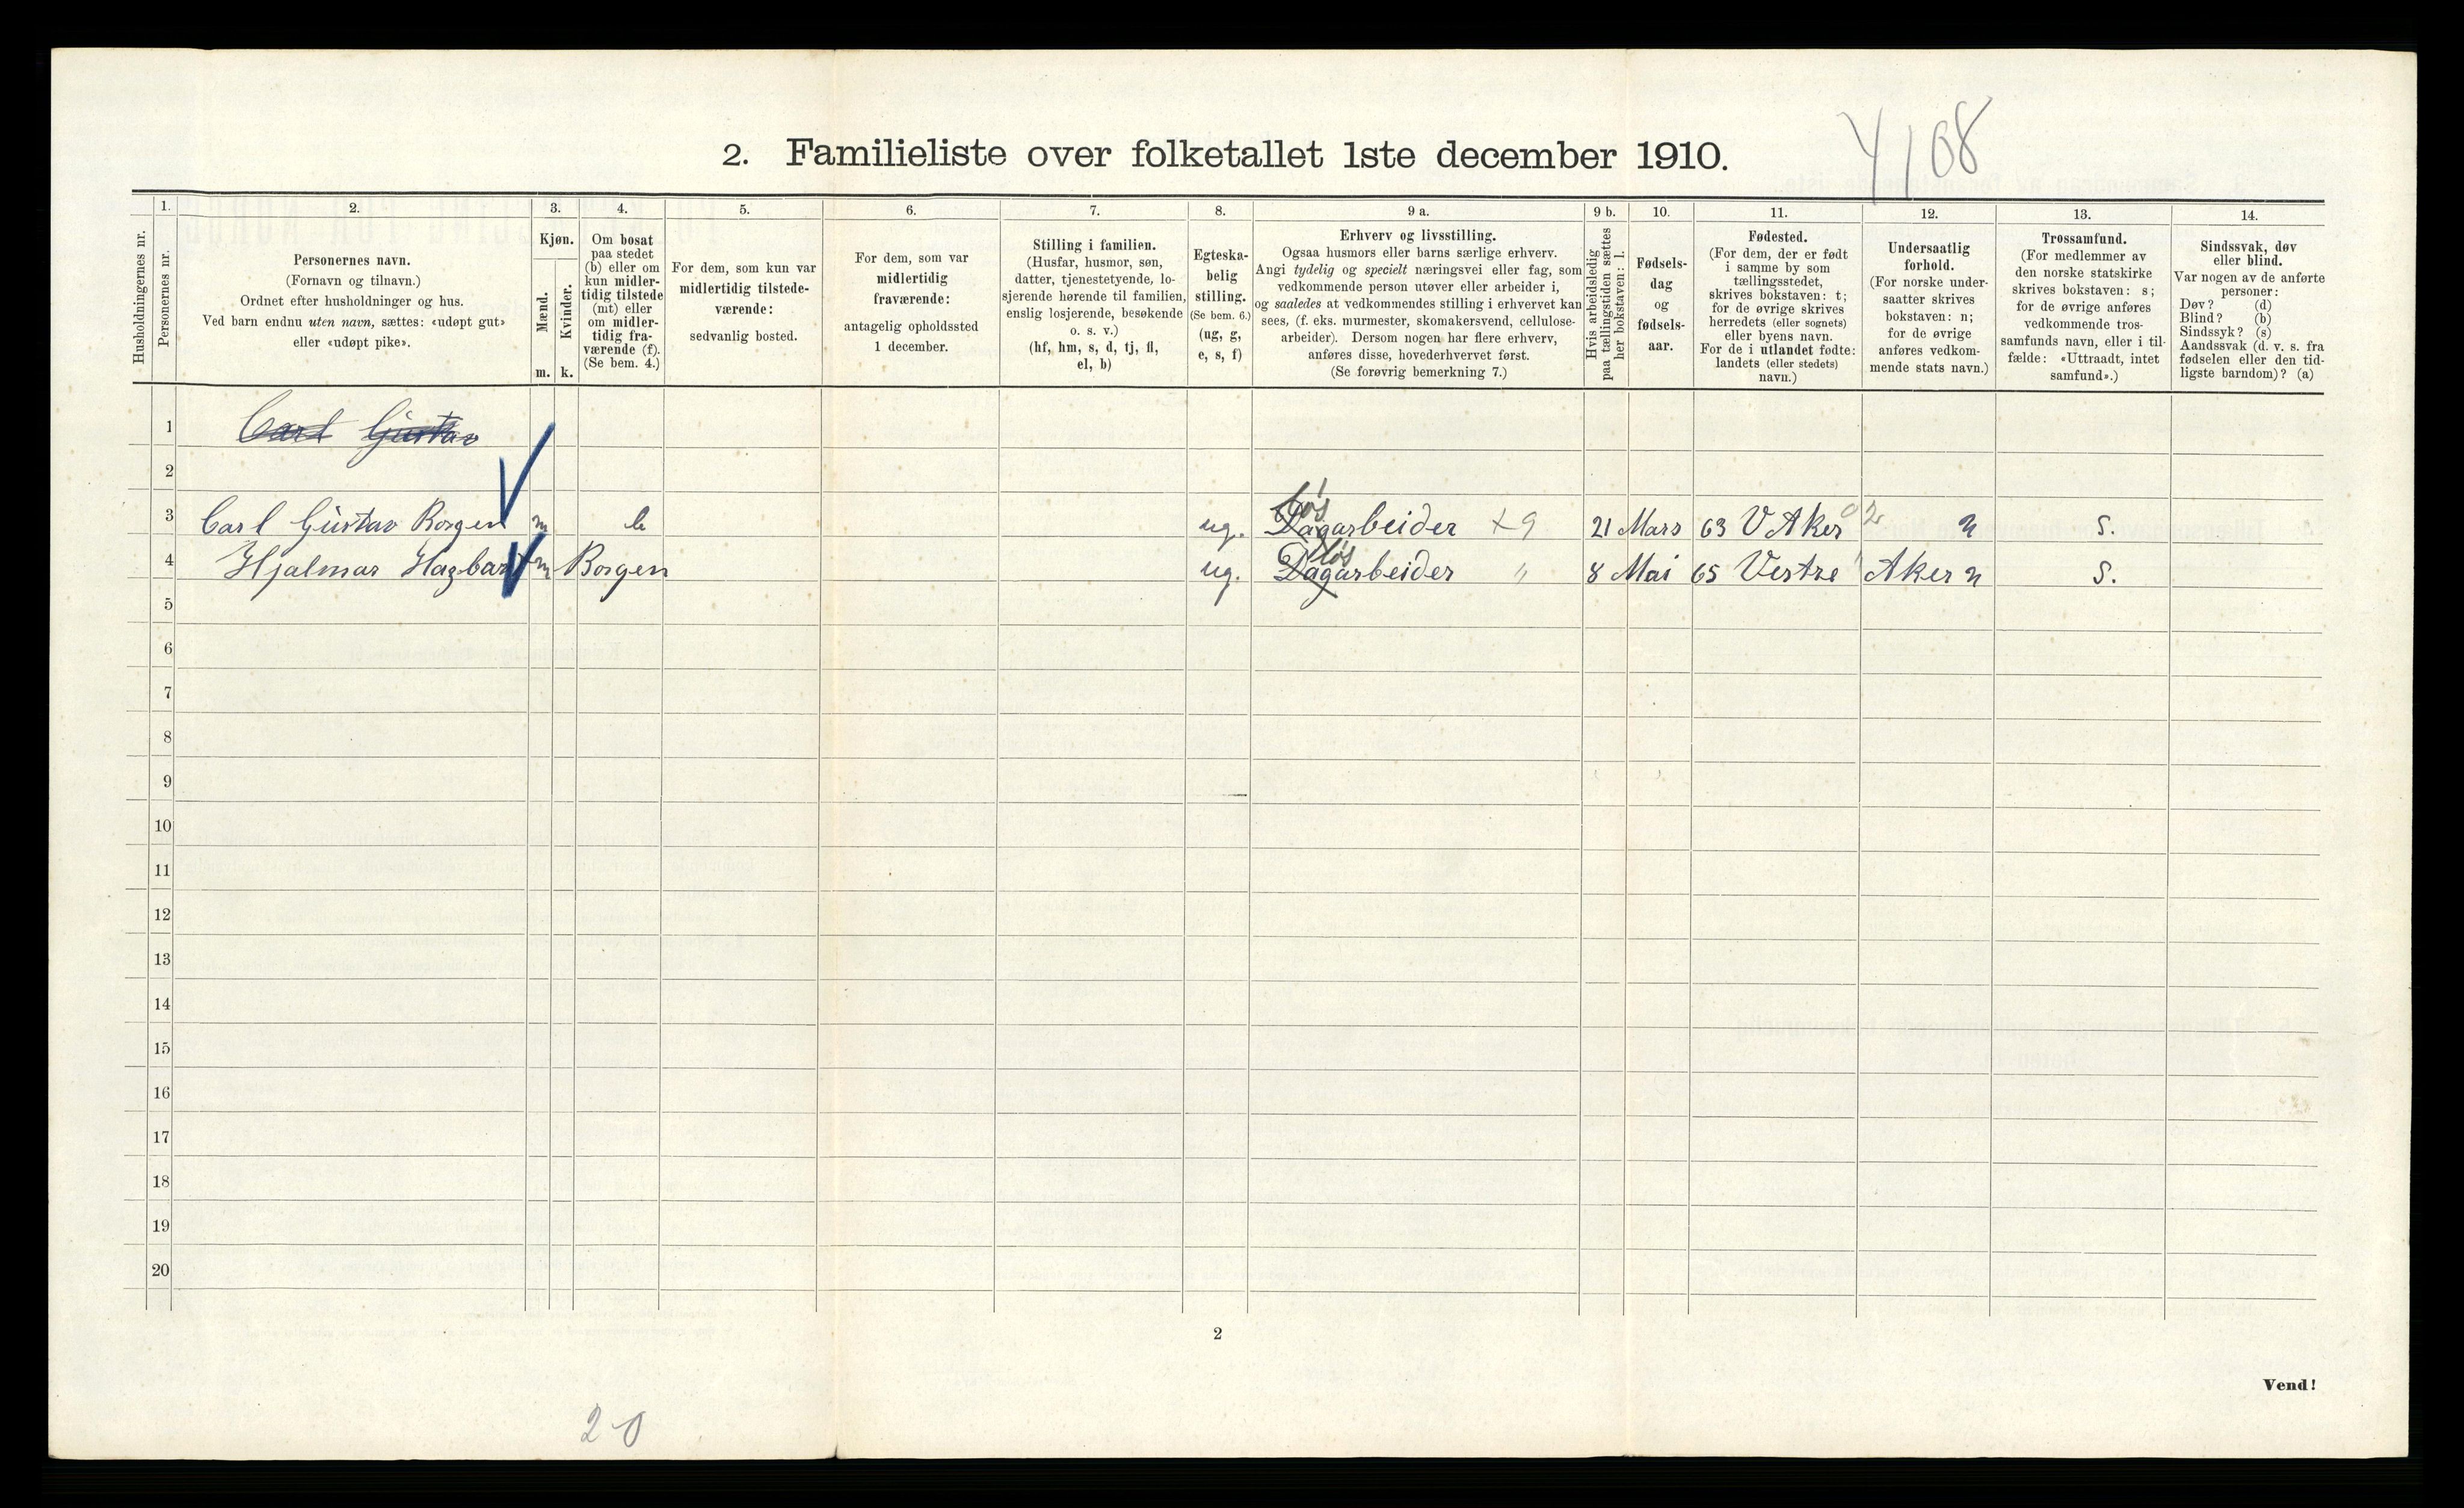 4/08
2. Familieliste over folketallet 1ste december 1910.
Husholdningernes nr.
1.
Personernes nr.
2.
Personernes navn.
(Fornavn og tilnavn.)
Ordnet efter husholdninger og hus.
Ved barn endnu uten navn, sættes: «udøpt gut»
eller «udøpt pike».
3.
Kjøn.
Mænd.
Kvinder.
m. k.
4.
Om bosat
paa stedet
(b) eller om
kun midler-
tidig tilstede
(mt) eller
om midler-
tidig fra-
værende (f).
(Se bem. 4.)
5.
For dem, som kun var
midlertidig tilstede-
værende:
sedvanlig bosted.
6.
For dem, som var
midlertidig
fraværende:
antagelig opholdssted
1 december.
7.
Stilling i familien.
(Husfar, husmor, søn,
datter, tjenestetyende, lo-
sjerende hørende til familien,
enslig losjerende, besøkende
o. s. v.)
(hf, hm, s, d, tj, fl,
el, b)
8.
Egteska-
belig
stilling.
(Se bem. 6.)
(ug, g,
e, s, f)
9 a.
Erhverv og livsstilling.
Ogsaa husmors eller barns særlige erhverv.
Angi tydelig og specielt næringsvei eller fag, som
vedkommende person utøver eller arbeider i,
og saaledes at vedkommendes stilling i erhvervet kan
sees, (f. eks. murmester, skomakersvend, cellulose-
arbeider). Dersom nogen har flere erhverv,
anføres disse, hovederhvervet først.
(Se forøvrig bemerkning 7.)
9 b.
Hvis arbeidsledig
paa tællingstiden sættes
her bokstaven: l.
10.
Fødsels-
dag
og
fødsels-
aar.
11.
Fødested.
(For dem, der er født
i samme by som
tællingsstedet,
skrives bokstaven: t;
for de øvrige skrives
herredets (eller sognets)
eller byens navn.
For de i utlandet fødte:
landets (eller stedets)
navn.)
12.
Undersaatlig
forhold.
(For norske under-
saatter skrives
bokstaven: n;
for de øvrige
anføres vedkom-
mende stats navn.)
13.
Trossamfund.
(For medlemmer av
den norske statskirke
skrives bokstaven: s;
for de øvrige anføres
vedkommende tros-
samfunds navn, eller i til-
fælde: «Uttraadt, intet
samfund».)
14.
Sindssvak, døv
eller blind.
Var nogen av de anførte
personer:
Døv? (d)
Blind? (b)
Sindssyk? (s)
Aandssvak (d. v. s. fra
fødselen eller den tid-
ligste barndom)? (a)
1 Carl Gustav
2
løs
3 Carl Gustav Borgen m b ug. Dagarbeider +9 21 Mars 63 V Aker 02 n s.
løs
4 Hjalmar Hagbart m Borgen ug. Dagarbeider " 8 Mai 65 Vestre Aker n s.
5
6
7
8
9
10
11
12
13
14
15
16
17
18
19
20
2
Vend!
2-0